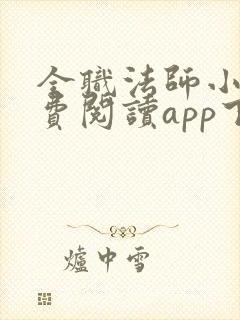 全職法師小
費閱讀app下
爐中雪